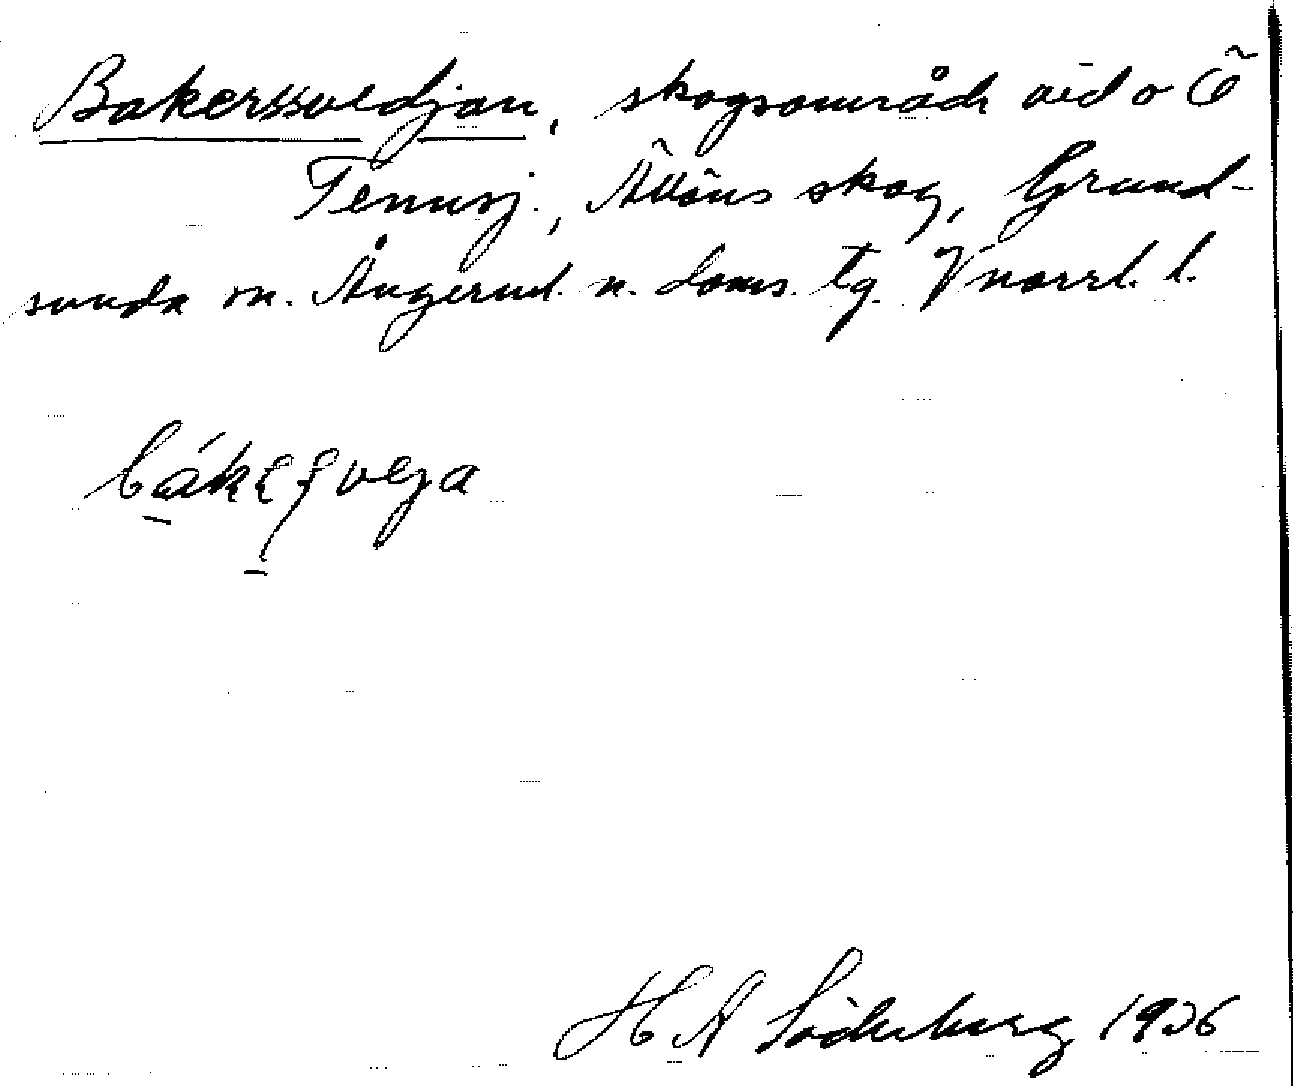 Bakerssvedjan, skogsområde vid o Ö
Tennsj., Ällöns skog, Grund-
sunda sn. Ångerml. n. doms. tg. Vnorrl. l.
H A Söderberg 1936